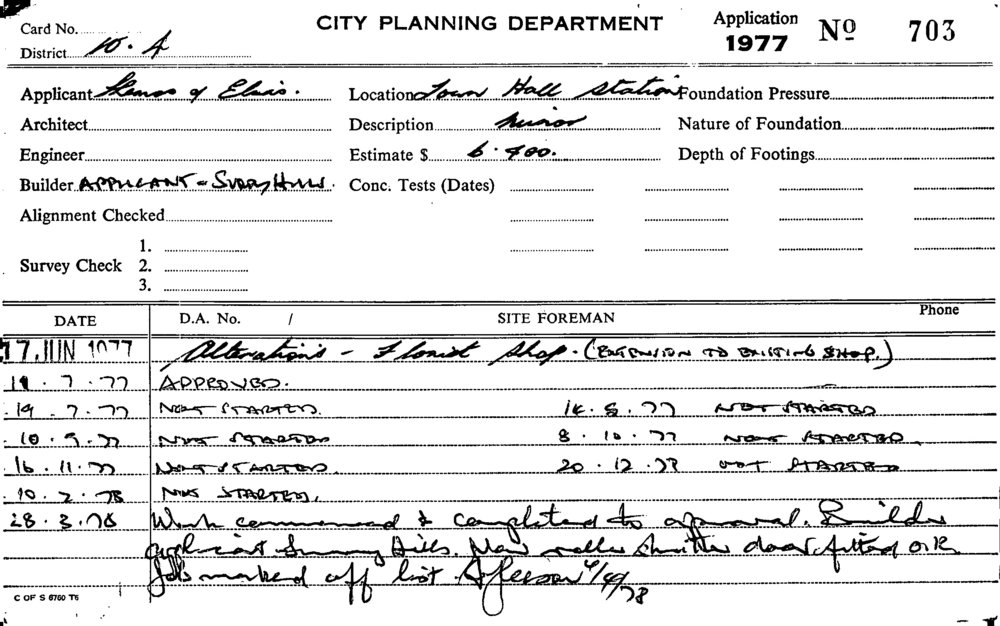 CITY PLANNING DEPARTMENT
Card No.
District 10. A
Application 1977 Nº 703
Applicant of Location Town Hall Station Foundation Pressure
Architect Description minor Nature of Foundation
Engineer Estimate $ 6. 400. Depth of Footings
Builder APPLICANT - SURRY HILLS. Conc. Tests (Dates)
Alignment Checked
1.
Survey Check 2.
3.
DATE D.A. No. / SITE FOREMAN Phone
17 JUN 1977 Alterations - Florist Shop. (EXTENSION TO EXISTING SHOP.)
. 7 . 77 APPROVED.
19 . 7 . 77 NOT STARTED. . 8 . 77 NOT STARTED
10 . 9 . 77 NOT STARTED 8 . 10 . 77 NOT STARTED.
16 . 11 . 77 NOT STARTED. 20 . 12 . 77 NOT STARTED
10 . 2 . 78 NOT STARTED.
28 . 3 . 78 Work commenced & completed to approval. Builder
applicant Surry Hills. New roller shutter door fitted O.K.
Job marked off list. /4/78
C OF S 6760 T6